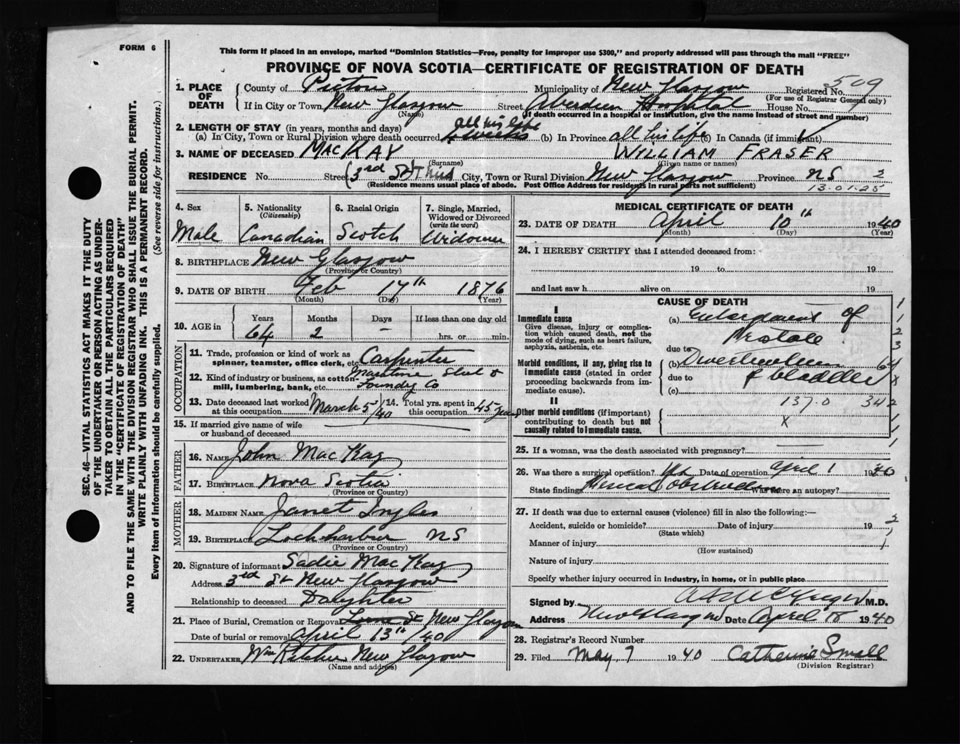 FORM 6
This form if placed in an envelope, marked "Dominion Statistics—Free, penalty for improper use $300," and properly addressed will pass through the mail "FREE"
PROVINCE OF NOVA SCOTIA—CERTIFICATE OF REGISTRATION OF DEATH
SEC. 46—VITAL STATISTICS ACT MAKES IT THE DUTY
OF THE UNDERTAKER OR PERSON ACTING AS UNDER-
TAKER TO OBTAIN ALL THE PARTICULARS REQUIRED
IN THE "CERTIFICATE OF REGISTRATION OF DEATH"
AND TO FILE THE SAME WITH THE DIVISION REGISTRAR WHO SHALL ISSUE THE BURIAL PERMIT.
WRITE PLAINLY WITH UNFADING INK. THIS IS A PERMANENT RECORD.
Every item of information should be carefully supplied. (See reverse side for instructions.)
1. PLACE OF DEATH County of Pictou Municipality of New Glasgow Registered No. 509
(For use of Registrar General only)
If in City or Town New Glasgow Street Aberdeen Hospital House No.
(Name) (If death occurred in a hospital or institution, give the name instead of street and number)
2. LENGTH OF STAY (in years, months and days)
(a) In City, Town or Rural Division where death occurred all his life (b) In Province all his life (c) In Canada (if immigrant)
3. NAME OF DECEASED MACKAY WILLIAM FRASER
(Surname) (Given name or names)
RESIDENCE No. Street 3rd St City, Town or Rural Division New Glasgow Province NS 2
(Residence means usual place of abode. Post Office Address for residents in rural parts not sufficient) 13.01.25
4. Sex Male
5. Nationality (Citizenship) Canadian
6. Racial Origin Scotch
7. Single, Married, Widowed or Divorced (write the word) Widower
8. BIRTHPLACE New Glasgow
(Province or Country)
9. DATE OF BIRTH Feb 17th 1876
(Month) (Day) (Year)
10. AGE in Years Months Days If less than one day old
64 2 — hrs. or min.
OCCUPATION
11. Trade, profession or kind of work as spinner, teamster, office clerk, etc. Carpenter
12. Kind of industry or business, as cotton mill, lumbering, bank, etc. Maritime Steel & Foundry Co
13. Date deceased last worked at this occupation March 5/40 14. Total yrs. spent in this occupation 45 years
15. If married give name of wife or husband of deceased
FATHER
16. Name John MacKay
17. Birthplace Nova Scotia
(Province or Country)
MOTHER
18. Maiden Name Janet Ingles
19. Birthplace Lochharbur NS
(Province or Country)
20. Signature of informant Sadie MacKay
Address 3rd St New Glasgow
Relationship to deceased Daughter
21. Place of Burial, Cremation or Removal Lorne St New Glasgow
Date of burial or removal April 13th /40
22. UNDERTAKER Wm New Glasgow
(Name and address)
MEDICAL CERTIFICATE OF DEATH
23. DATE OF DEATH April 10th 1940
(Month) (Day) (Year)
24. I HEREBY CERTIFY that I attended deceased from:
19 to 19
and last saw h alive on 19
CAUSE OF DEATH
I
Immediate cause
Give disease, injury or complication which caused death, not the mode of dying, such as heart failure, asphyxia, asthenia, etc.
(a) Enlargement of Prostate
due to
Morbid conditions, if any, giving rise to immediate cause (stated in order proceeding backwards from immediate cause).
(b) Diverticulum
due to of bladder
(c)
137.0 342
II
Other morbid conditions (if important) contributing to death but not causally related to immediate cause.
X
25. If a woman, was the death associated with pregnancy?
26. Was there a surgical operation? Yes Date of operation April 1 1940
State findings Was there an autopsy?
27. If death was due to external causes (violence) fill in also the following:—
Accident, suicide or homicide? Date of injury 19
(State which)
Manner of injury
(How sustained)
Nature of injury
Specify whether injury occurred in industry, in home, or in public place
Signed by M.D.
Address New Glasgow Date April 1940
28. Registrar's Record Number
29. Filed May 7 1940 Catherine Small
(Division Registrar)